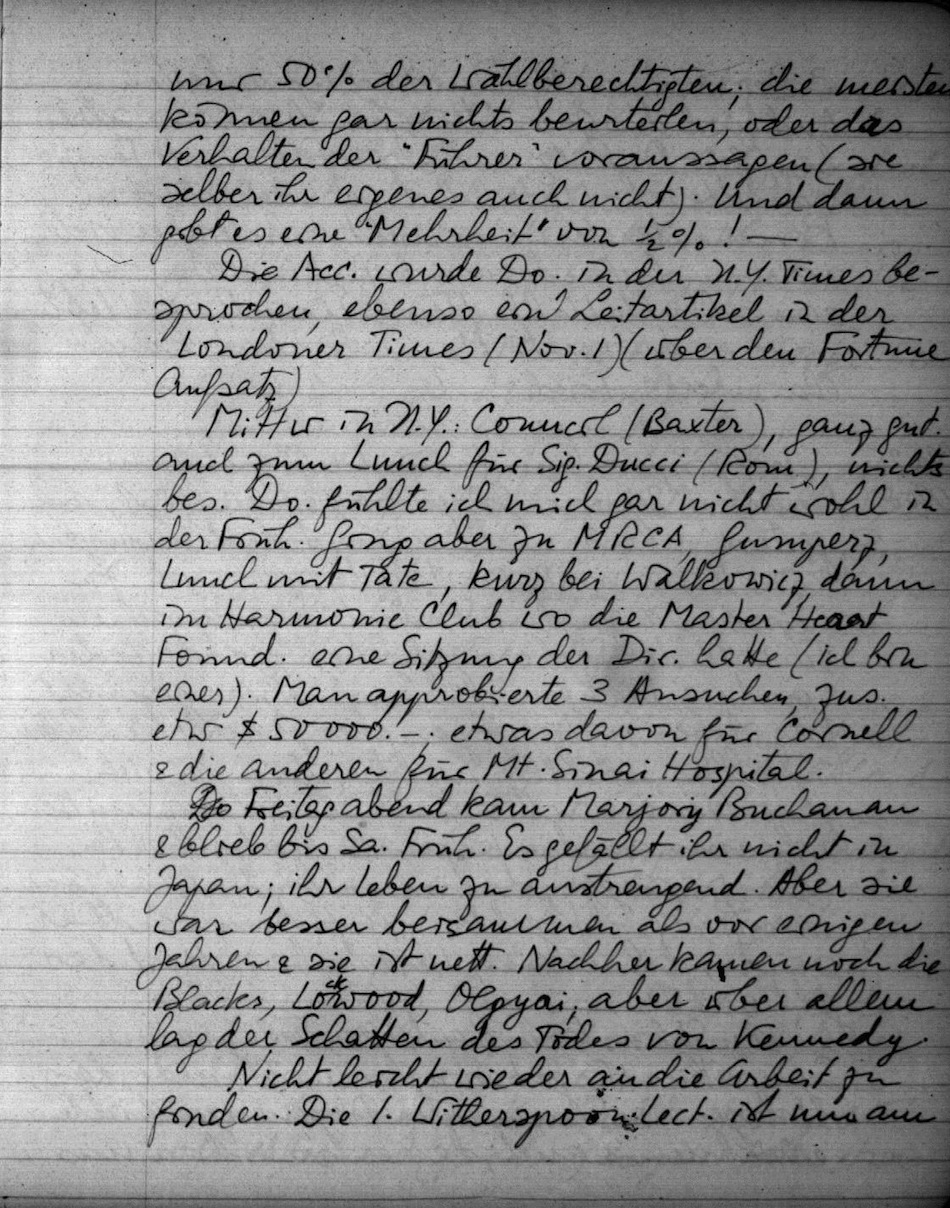 nur 50% der Wahlberechtigten; die meisten
können gar nichts beurteilen, oder das
Verhalten der "Führer" voraussagen (sie
selber ihr eigenes auch nicht). Und dann
gibt es eine "Mehrheit" von ½%! —
Die Acc. wurde Do. in der N.Y. Times be-
sprochen, ebenso ein Leitartikel in der
Londoner Times (Nov. 1) (über den Fortune
Aufsatz)
Mittw in N.Y.: Council (Baxter), ganz gut.
und zum Lunch für Sig. Ducci (Rom), nichts
bes. Do. fühlte ich mich gar nicht wohl in
der Früh. Ging aber zu MRCA, Gumperz,
Lunch mit Tate, kurz bei Walkowicz, dann
im Harmonie Club wo die Master Heart
Found. eine Sitzung der Dir. hatte (ich bin
einer). Man approbierte 3 Ansuchen, zus.
etw $ 50 000.–; etwas davon für Cornell
& die anderen für Mt. Sinai Hospital.
Freitag abend kam Marjory Buchanan
& blieb bis Sa. Früh. Es gefällt ihr nicht in
Japan; ihr Leben zu anstrengend. Aber sie
war besser beisammen als vor einigen
Jahren & sie ist nett. Nachher kamen noch die
Blacks, Lockwood, Olgyai, aber über allem
lag der Schatten des Todes von Kennedy.
Nicht leicht wieder an die Arbeit zu
finden. Die 1. Witherspoon Lect. ist nun am